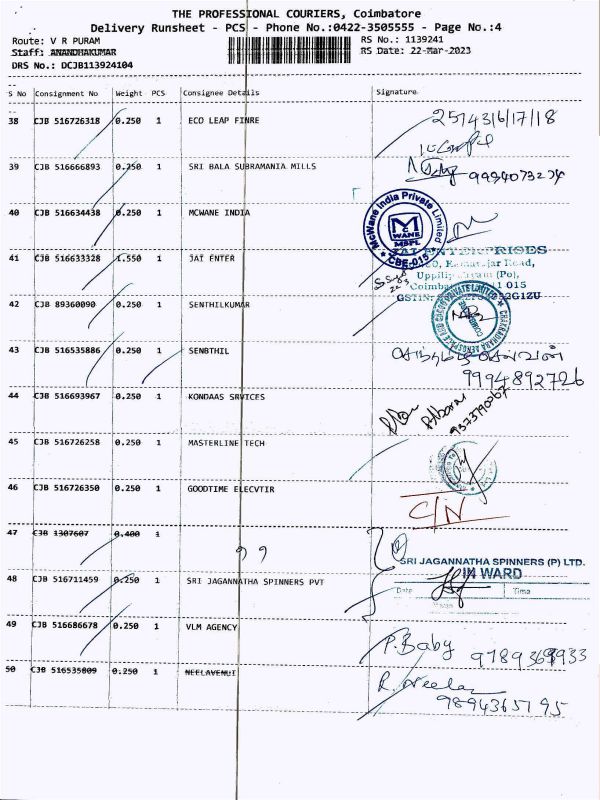 THE PROFESSIONAL COURIERS, Coimbatore
Delivery Runsheet - PCS - Phone No.:0422-3505555 - Page No.:4
Route: V R PURAM RS No.: 1139241
Staff: ANANDHAKUMAR RS Date: 22-Mar-2023
DRS No.: DCJB113924104
S No Consignment No Weight PCS Consignee Details Signature
38 CJB 516726318 0.250 1 ECO LEAP FINRE
39 CJB 516666893 0.250 1 SRI BALA SUBRAMANIA MILLS
9994073274
40 CJB 516634438 0.250 1 MCWANE INDIA
McWane India Private Limited
MCWANE
MSPL
CBE-015
41 CJB 516633328 1.550 1 JAI ENTER
JAI ENTERPRISES
42 CJB 89360090 0.250 1 SENTHILKUMAR
43 CJB 516535886 0.250 1 SENBTHIL
9994892726
44 CJB 516693967 0.250 1 KONDAAS SRVICES
9373790067
45 CJB 516726258 0.250 1 MASTERLINE TECH
46 CJB 516726350 0.250 1 GOODTIME ELECVTIR
C/N
47 CJB 1307607 0.400 1
99
SRI JAGANNATHA SPINNERS (P) LTD.
IN WARD
48 CJB 516711459 0.250 1 SRI JAGANNATHA SPINNERS PVT
Date Time
49 CJB 516686678 0.250 1 VLM AGENCY
P.Baby
50 CJB 516535809 0.250 1 NEELAVENUI
R. Neela
9894365195